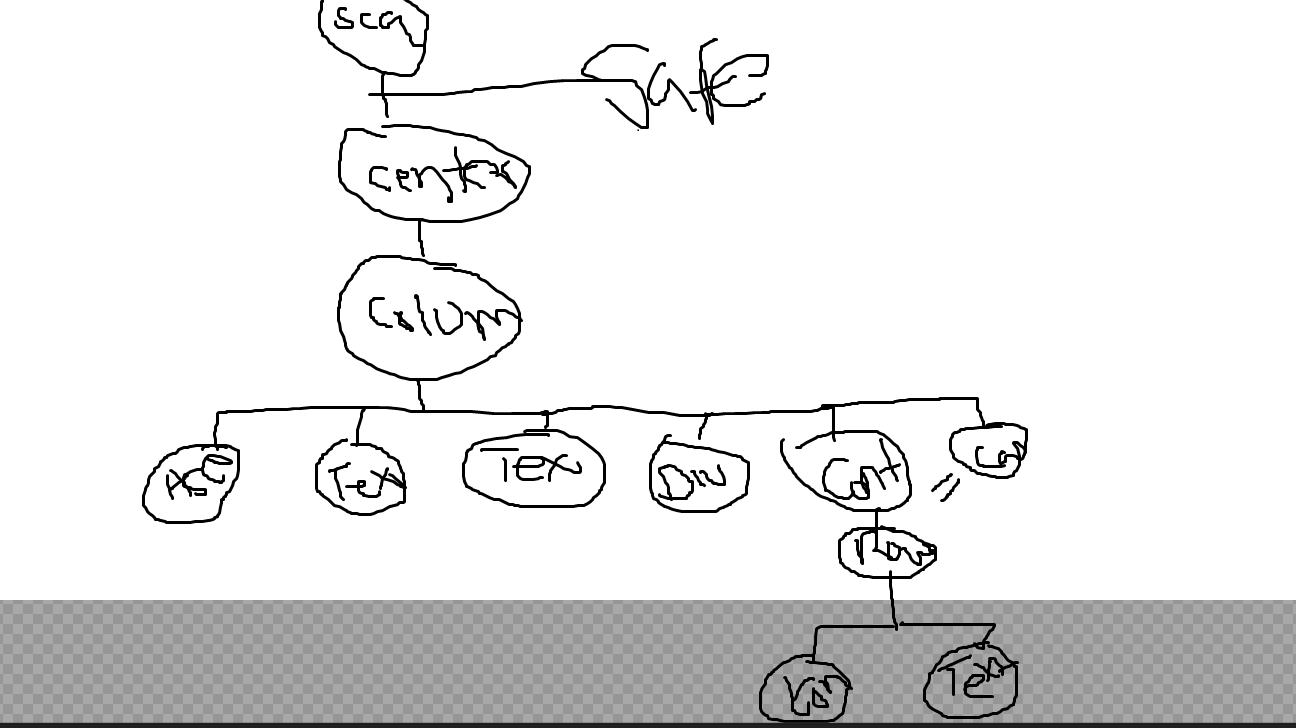 sca
Safe
center
Colum
Tex
Tex
Div
Cont
Con
Row
Tex